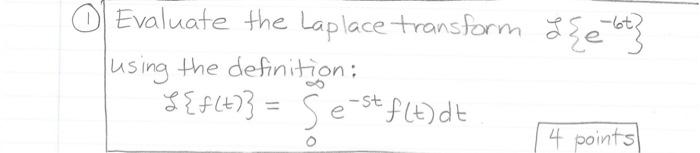 ① Evaluate the Laplace transform ℒ{e^{-6t}}
using the definition:
ℒ{f(t)} = ∫_0^∞ e^{-st} f(t) dt
4 points